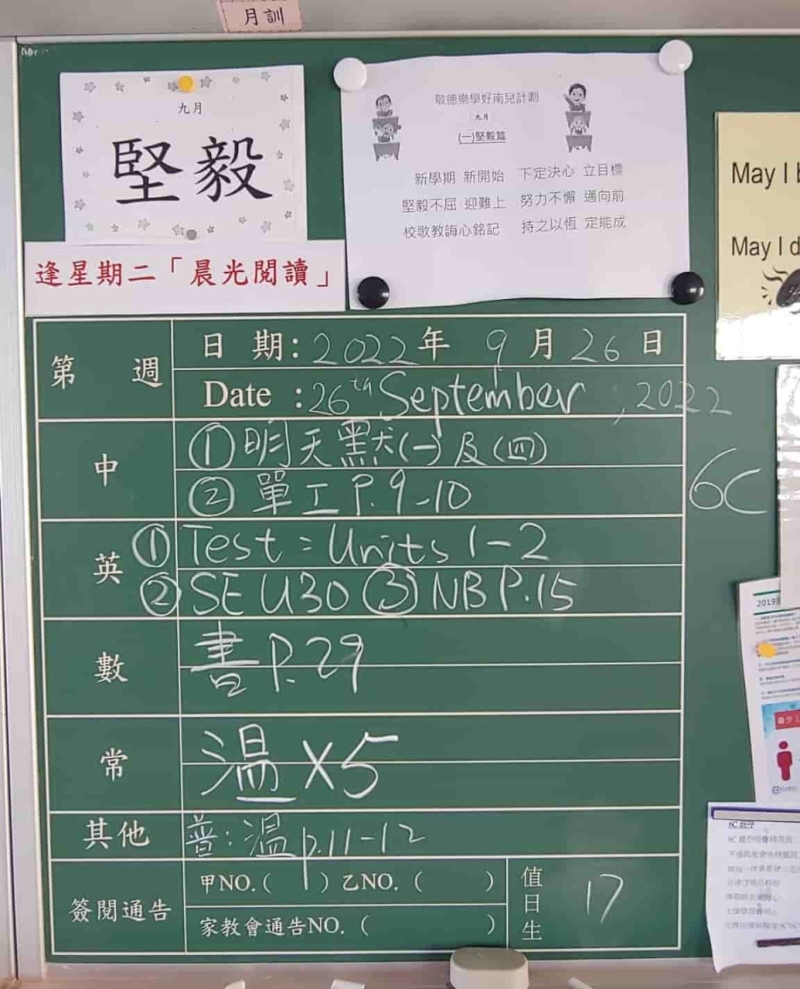 月訓
九月
堅毅
逢星期二「晨光閱讀」
敬德樂學好南兒計劃
九月
(一)堅毅篇
新學期 新開始 下定決心 立目標
堅毅不屈 迎難上 努力不懈 邁向前
校歌教誨心銘記 持之以恆 定能成
May I b
May I d
第 週
日 期:2022年 9月26日
Date :26th September, 2022
中
①明天默(一)及(四)
②單工P.9-10
6C
英
①Test: Units 1-2
②SE U30 ③NB P.15
數
書P.29
常
温x5
其他
普:温p.11-12
簽閱通告
甲NO.( )乙NO.( )
家教會通告NO.( )
值日生
17
2019